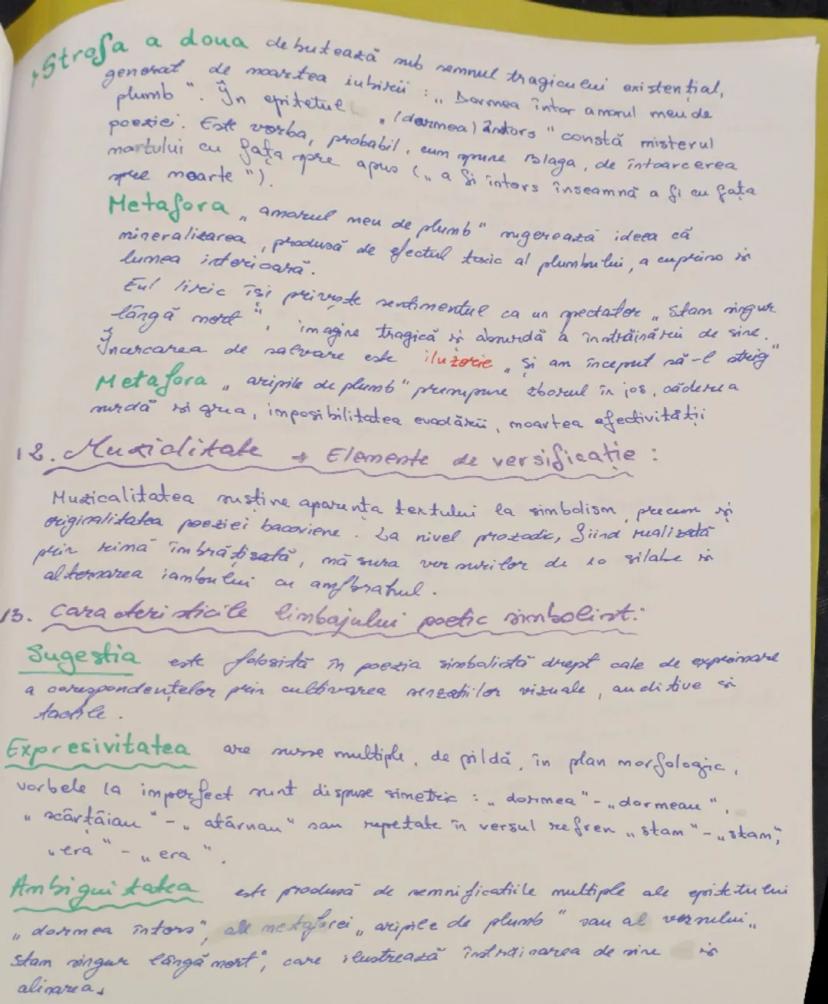 → Strofa a doua debutează sub semnul tragicului existențial,
generat de moartea iubirii : „ Dormea întors amorul meu de
plumb ". În epitetul „ (dormea) întors " constă misterul
poeziei. Este vorba, probabil, cum spune Blaga, de întoarcerea
mortului cu fața spre apus („ a fi întors înseamnă a fi cu fața
spre moarte ").
Metafora „ amorul meu de plumb " sugerează ideea că
mineralizarea, produsă de efectul toxic al plumbului, a cuprins și
lumea interioară.
Eul liric își privește sentimentul ca un spectator „ Stam singur
lângă mort ", imagine tragică și absurdă a înstrăinării de sine.
Încercarea de salvare este iluzorie „ Și am început să-l strig "
Metafora „ aripile de plumb " presupune zborul în jos, căderea
surdă și grea, imposibilitatea evadării, moartea afectivității
12. Muzicalitate → Elemente de versificație :
Muzicalitatea susține aparența textului la simbolism, precum și
originalitatea poeziei bacoviene. La nivel prozodic, fiind realizată
prin rimă îmbrățișată, măsura versurilor de 10 silabe și
alternarea iambului cu amfibrahul.
13. Caracteristicile limbajului poetic simbolist:
Sugestia este folosită în poezia simbolistă drept cale de exprimare
a corespondențelor prin cultivarea senzațiilor vizuale, auditive și
tactile.
Expresivitatea are surse multiple, de pildă, în plan morfologic,
vorbele la imperfect sunt dispuse simetric : „ dormea " - „ dormeau ",
„ scârțâiau " - „ atârnau " sau repetate în versul refren „ stam " - „ stam",
„ era " - „ era ".
Ambiguitatea este produsă de semnificațiile multiple ale epitetului
„ dormea întors", ale metaforei „ aripile de plumb " sau al versului „
Stam singur lângă mort", care ilustrează înstrăinarea de sine și
alinarea.